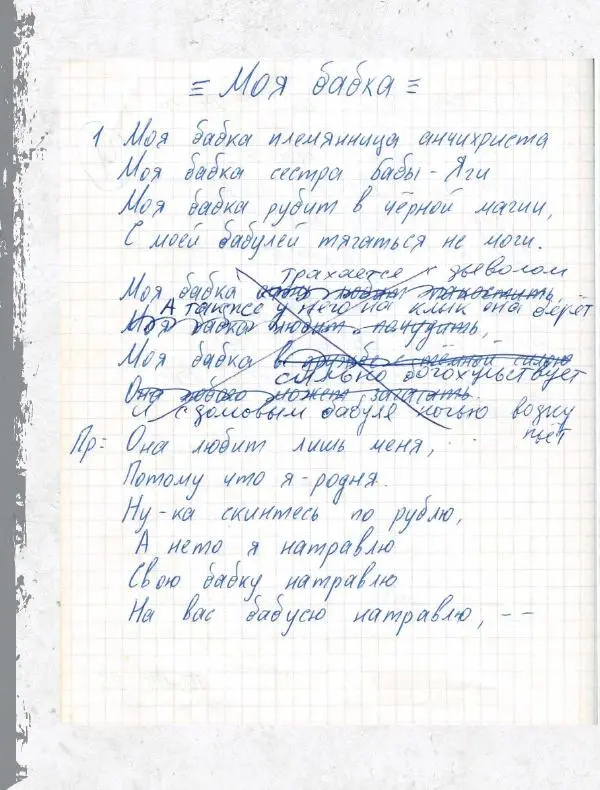 = Моя бабка =
1 Моя бабка племянница анчихриста
Моя бабка сестра Бабы-Яги
Моя бабка рубит в чёрной магии,
С моей бабулей тягаться не моги.
трахается с дьяволом
Моя бабка любит пакостить
А также у него на клык она берёт
Моя бабка любит почудить,
Моя бабка в дружбе с тёмной силою
сильно богохульствует
Она любого может загасить.
И с домовым бабуля ночью водку
пьёт
Пр: Она любит лишь меня,
Потому что я-родня.
Ну-ка скинтесь по рублю,
А нето я натравлю
Свою бабку натравлю
На вас бабусю натравлю, --